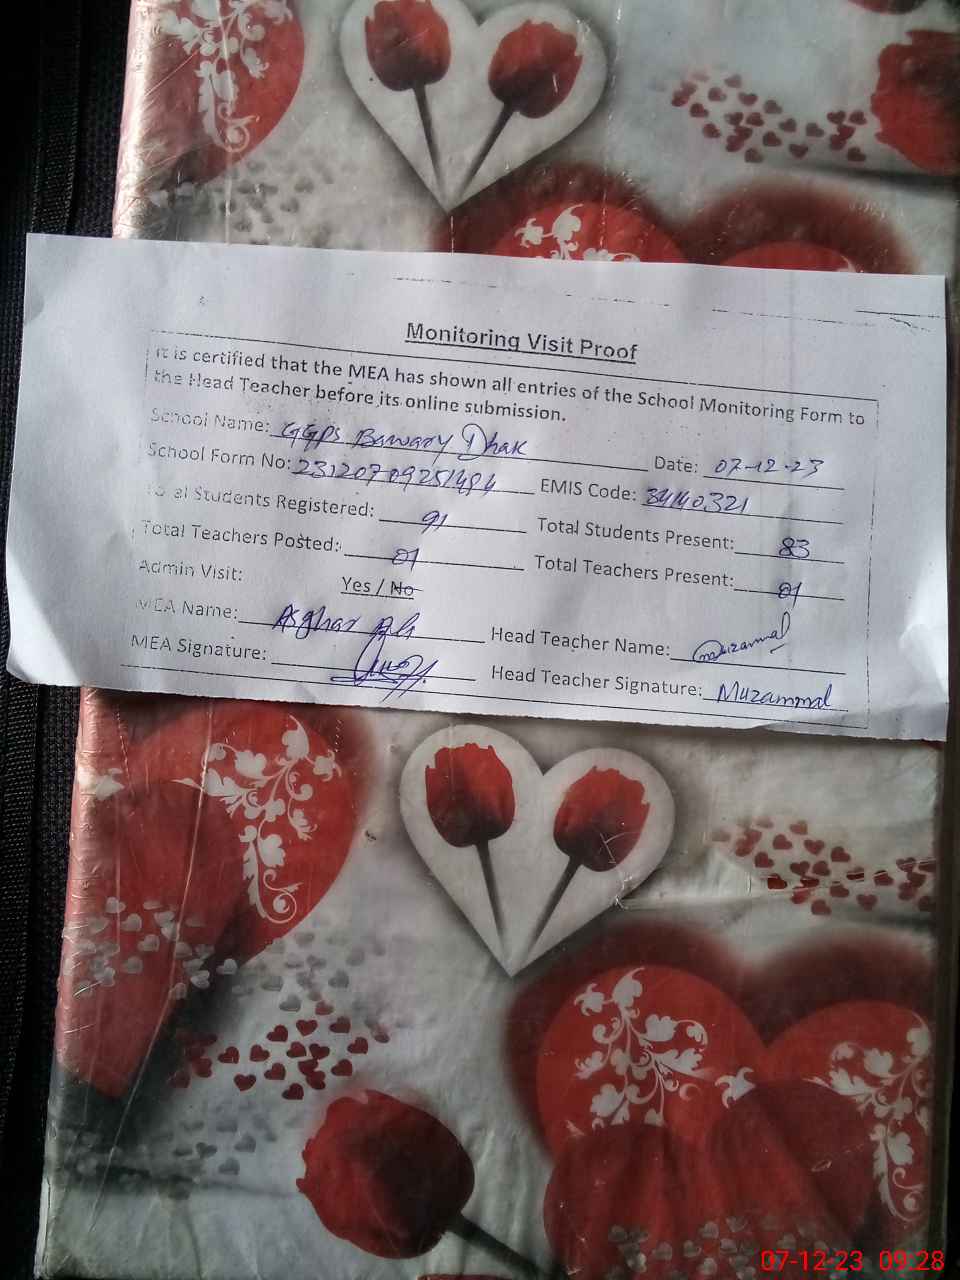 Monitoring Visit Proof
It is certified that the MEA has shown all entries of the School Monitoring Form to
the Head Teacher before its online submission.
School Name: GGPS Bawary Dhak Date: 07-12-23
School Form No: 23120709251494 EMIS Code: 34140321
Total Students Registered: 91 Total Students Present: 83
Total Teachers Posted: 01 Total Teachers Present: 01
Admin Visit: Yes / No
MEA Name: Asghar Ali Head Teacher Name: Muzammal
MEA Signature: Head Teacher Signature: Muzammal
07-12-23 09.28